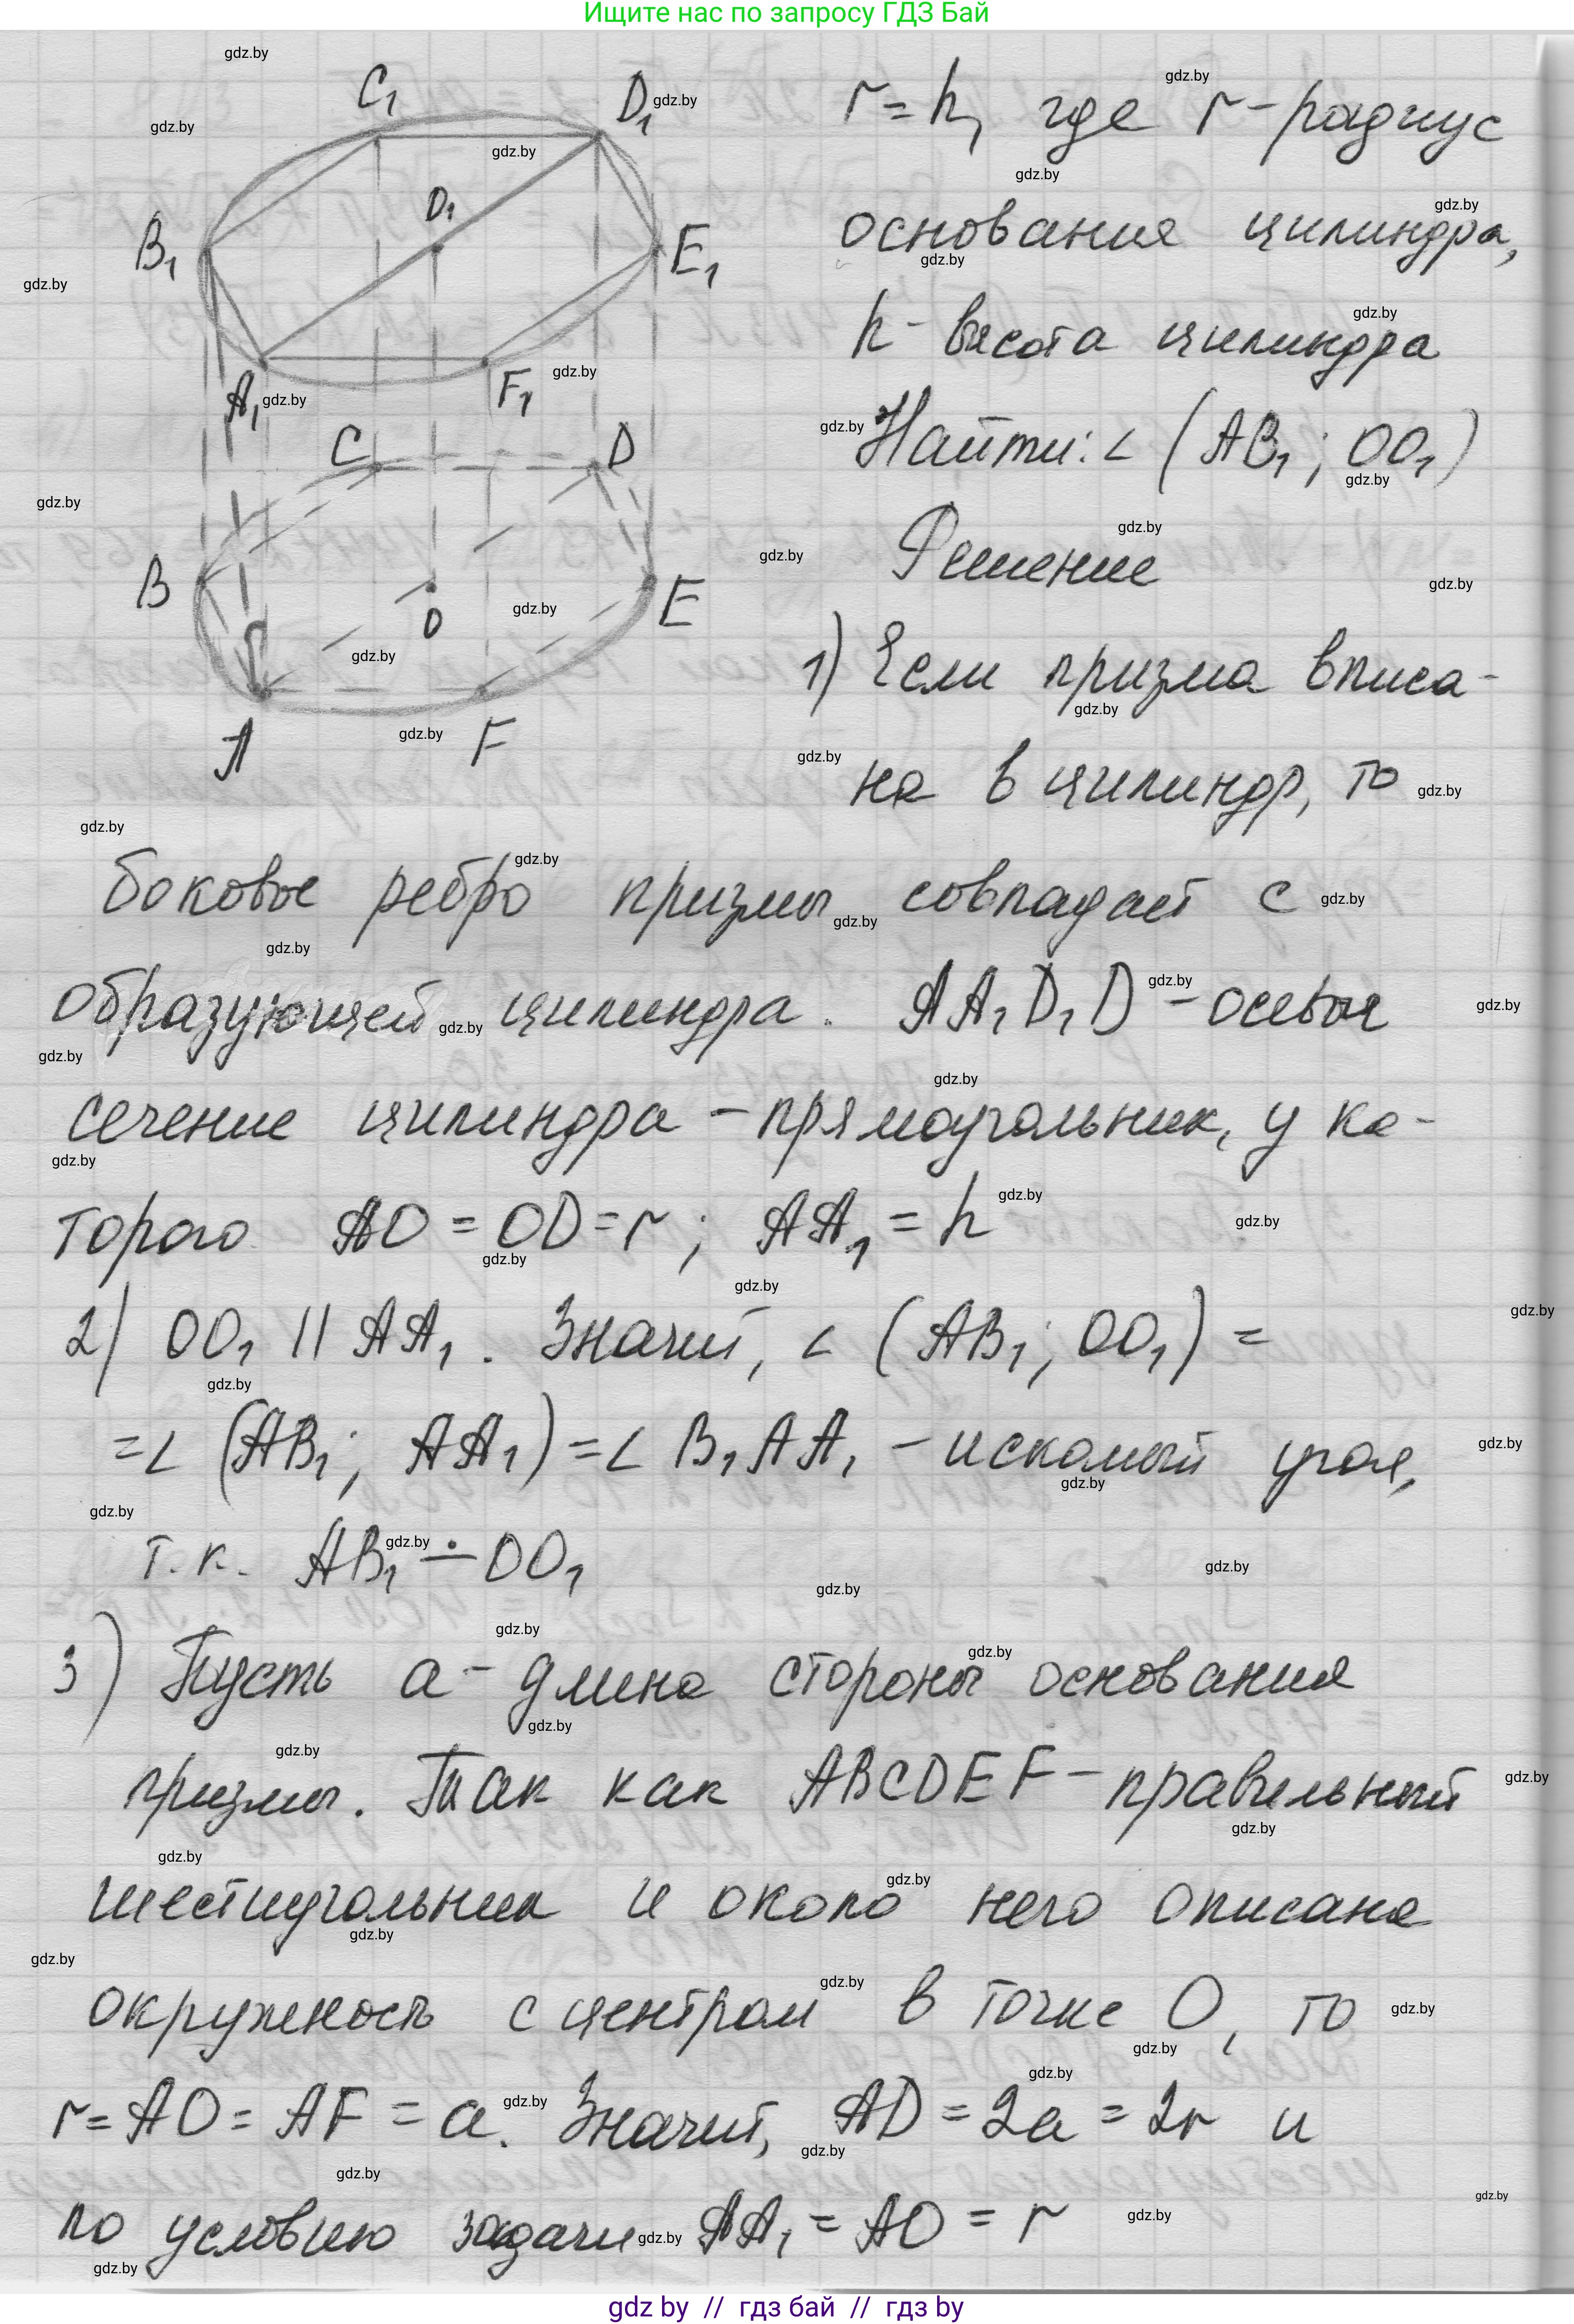 Ищите нас по запросу ГДЗ Бай
C₁
D₁
O₁
B₁
E₁
A₁
F₁
C
D
B
O
E
A
F
r = h, где r - радиус
основания цилиндра,
h - высота цилиндра
Найти: ∠ (AB₁; OO₁)
Решение
1) Если призма вписа-
на в цилиндр, то
боковое ребро призмы совпадает с
образующей цилиндра. AA₁D₁D - осевое
сечение цилиндра - прямоугольник, у ко-
торого AO = OD = r; AA₁ = h
2) OO₁ || AA₁. Значит, ∠ (AB₁; OO₁) =
= ∠ (AB₁; AA₁) = ∠ B₁AA₁ - искомый угол,
т.к. AB₁ ∸ OO₁
3) Пусть a - длина стороны основания
призмы. Так как ABCDEF - правильный
шестиугольник и около него описана
окружность с центром в точке O, то
r = AO = AF = a. Значит, AD = 2a = 2r и
по условию задачи AA₁ = AO = r
gdz by // гдз бай // гдз by